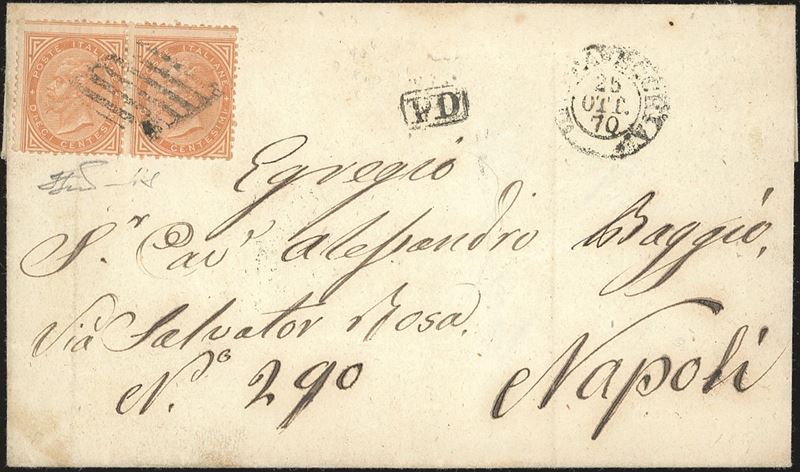 POSTE ITALIANE
DIECI CENTESIMI
POSTE ITALIANE
DIECI CENTESIMI
P.D
25
OTT.
70
Egregio
S.r Cav.r Alessandro Baggio,
Via Salvator Rosa,
N.o 290
Napoli